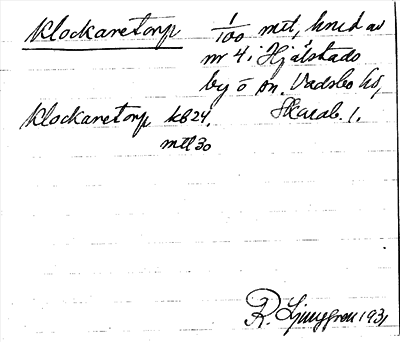 Klockaretorp
1/100 mtl, hmd av
nr 4 i Hjälstads
by o sn. Vadsbo hd,
Skarab. l.
Klockaretorp KB 24.
mtl 30
R. Ljunggren 1931